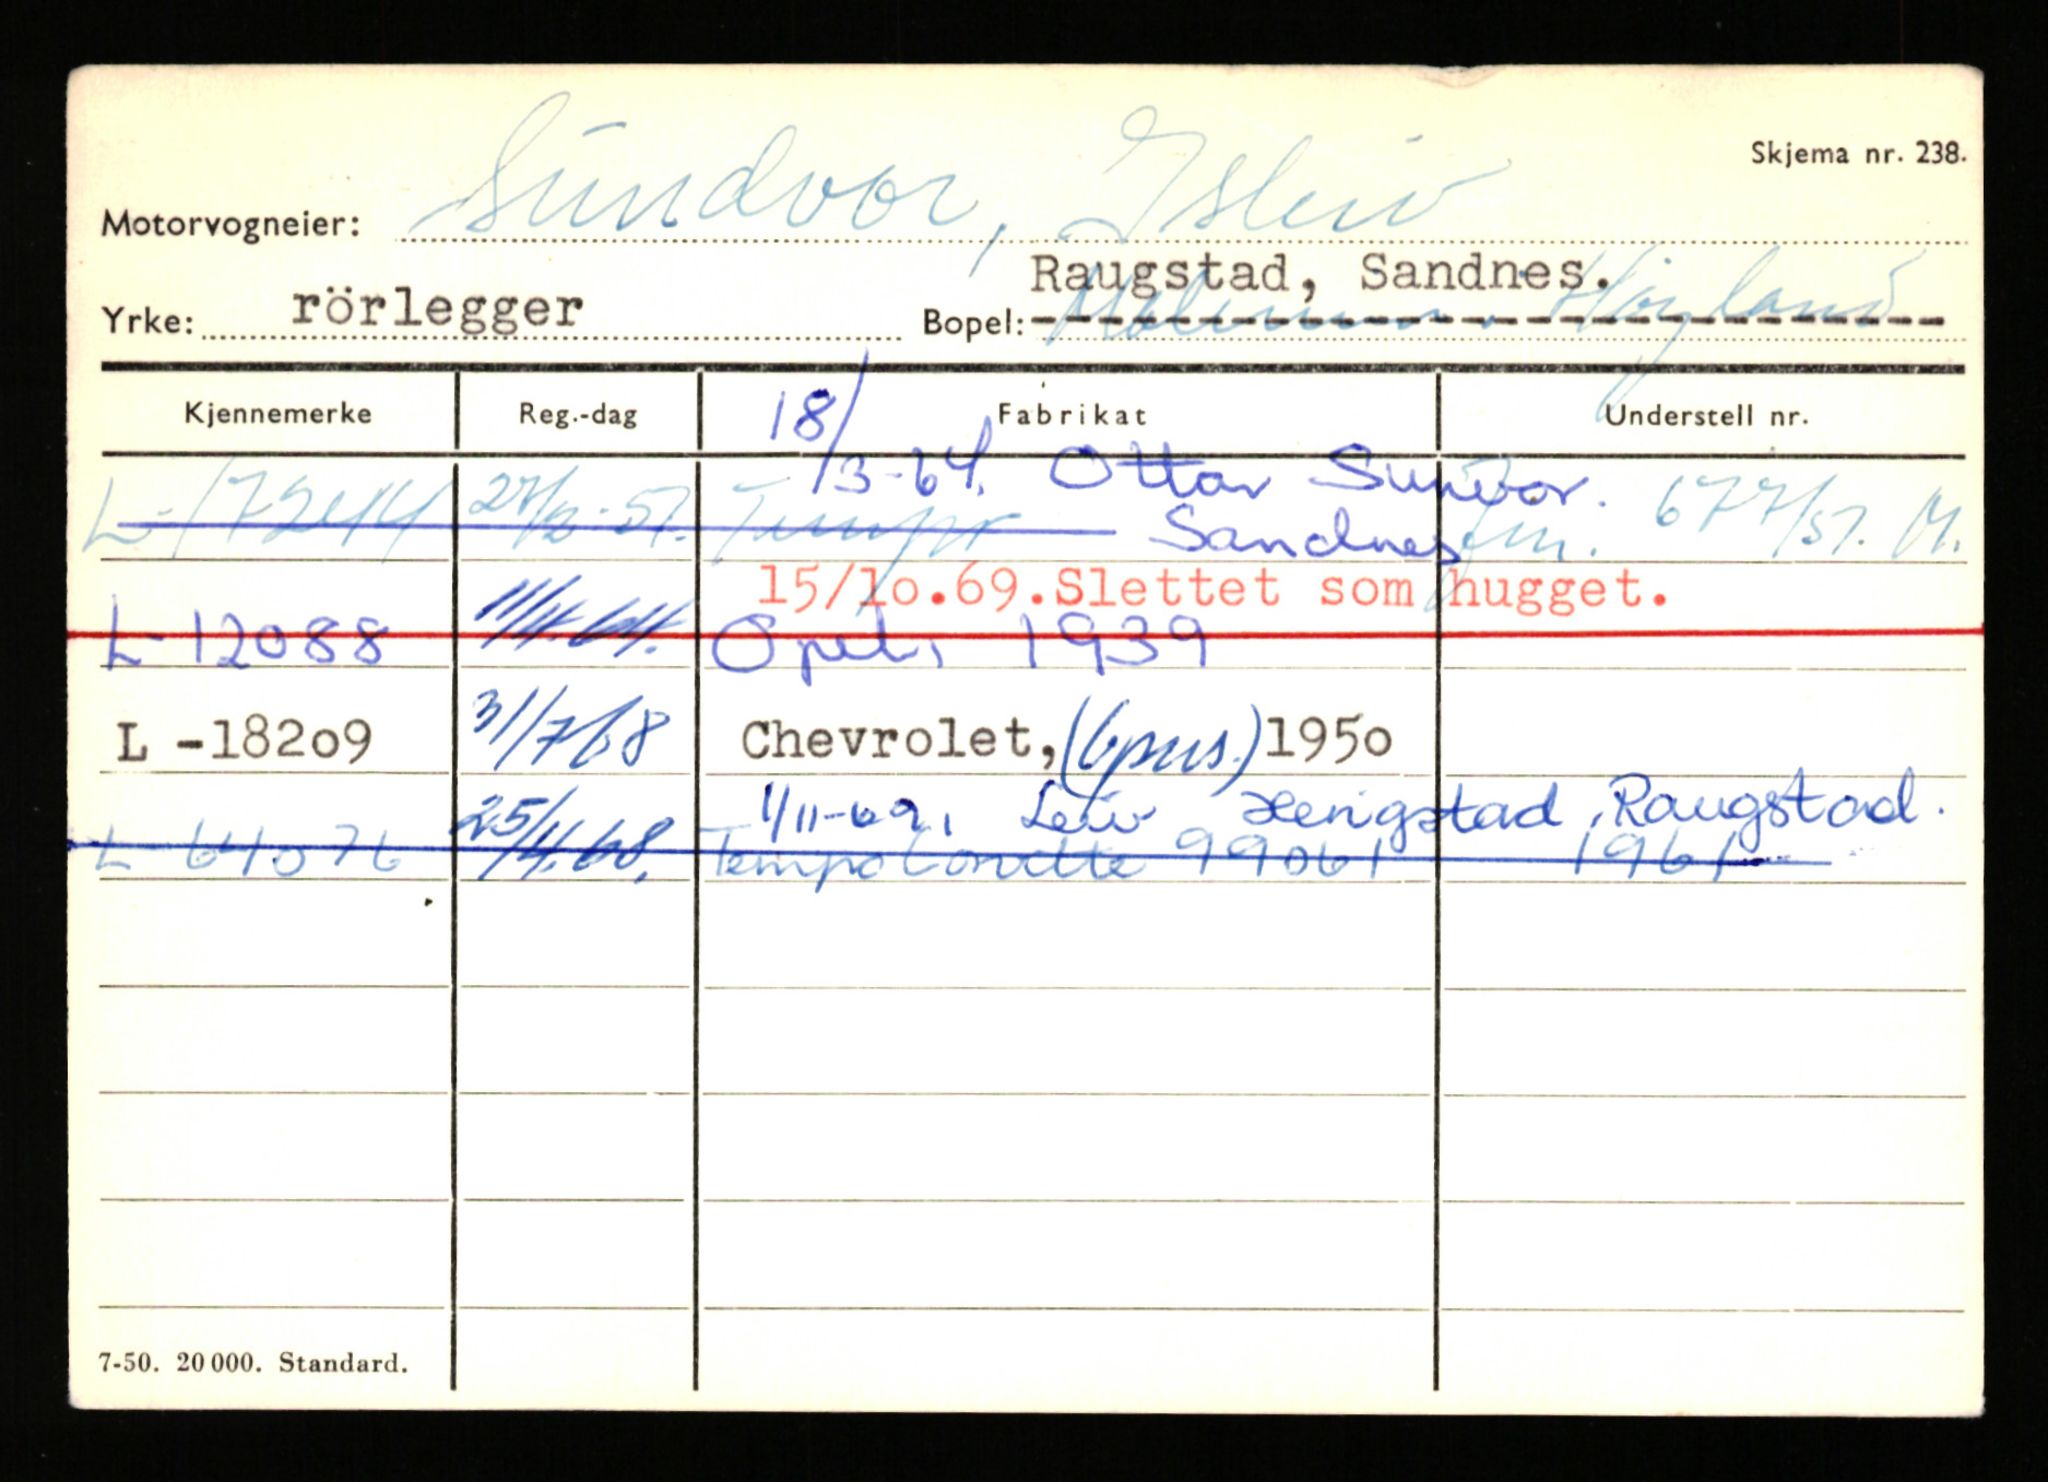 Skjema nr. 238.
Motorvogneier: Sundvor, Isleiv
Raugstad, Sandnes.
Yrke: rörlegger Bopel: Høyland
Kjennemerke Reg.-dag Fabrikat Understell nr.
18/3-64. Ottar Sundvor.
L-17244 Tempo 677/57. M.
Sandnes
15/1o.69.Slettet som hugget.
L-12088 11/4.64. Opel, 1939
L -182o9 31/7 68 Chevrolet,(6pers.)195o
1/11-69, Leiv Hengstad, Raugstad.
L-64076 25/4.68. Tempo Corvette 99061 1961
7-50. 20 000. Standard.